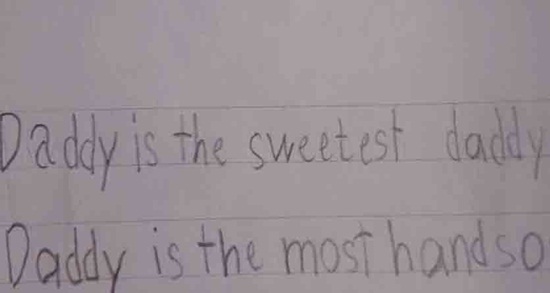 Daddy is the sweetest daddy
Daddy is the most handso